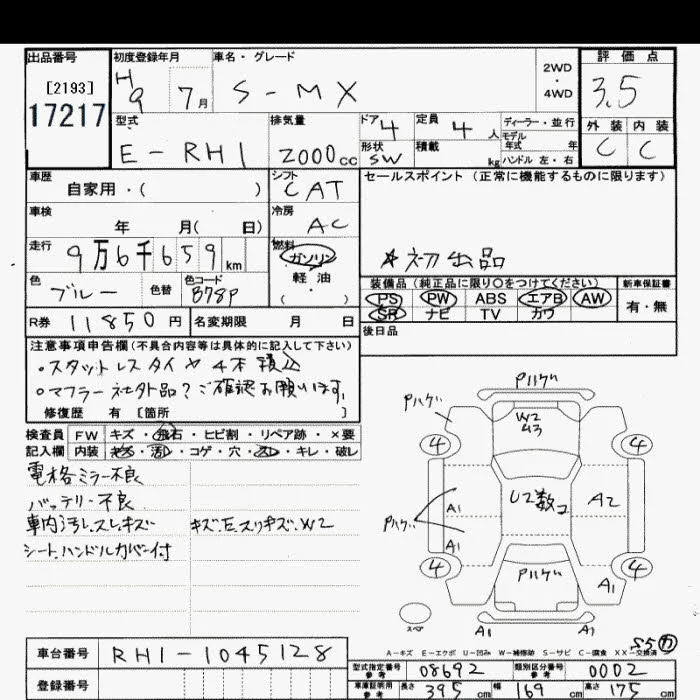 出品番号 初度登録年月 車名・グレード 2WD・4WD 評価点
[2193] H9 7月 S-MX 3.5
17217
型式 排気量 ドア 4 定員 4人 ディーラー・並行 外装 内装
E-RH1 2000cc 形状 SW 積載 kg モデル年式 年 ハンドル 左・右 C C
車歴 シフト セールスポイント (正常に機能するものに限ります)
自家用・( ) CAT
車検 冷房
年 月( 日) AC
走行 燃料
9万6千659km ガソリン ☆初出品
軽油
・( )
色 ブルー 色替 色コード B78P
装備品(純正品に限り○をつけてください) 新車保証書
PS PW ABS エアB AW 有・無
SR ナビ TV カワ
R券 11850円 名変期限 月 日 後日品
注意事項申告欄(不具合内容等は具体的に記入して下さい)
・スタットレスタイヤ4本積込
○マフラー社外品?ご確認お願います。
修復歴 有 [箇所 ]
検査員 FW キズ・飛石・ヒビ割・リペア跡・×要
記入欄 内装 キズ・汚レ・コゲ・穴・スレ・キレ・破レ
電格ミラー不良
バッテリー不良
車内汚レ.スレキズ キズ.E.スリキズ.W2
シート.ハンドルカバー付
Pハゲ
Pハゲ
W2
U3
4 4
U2数コ
A2
A1
Pハゲ
A1
4 4
Pハゲ
A1
スペア
A1 A1
S5 カ
A-キズ E-エクボ U-凹み W-補修跡 S-サビ C-腐食 XX-交換済
車台番号 RH1-1045128
型式指定番号 参考 08692 類別区分番号 参考 0002
登録番号
車庫証明用 参考 長さ 395cm 幅 169cm 高さ 175cm